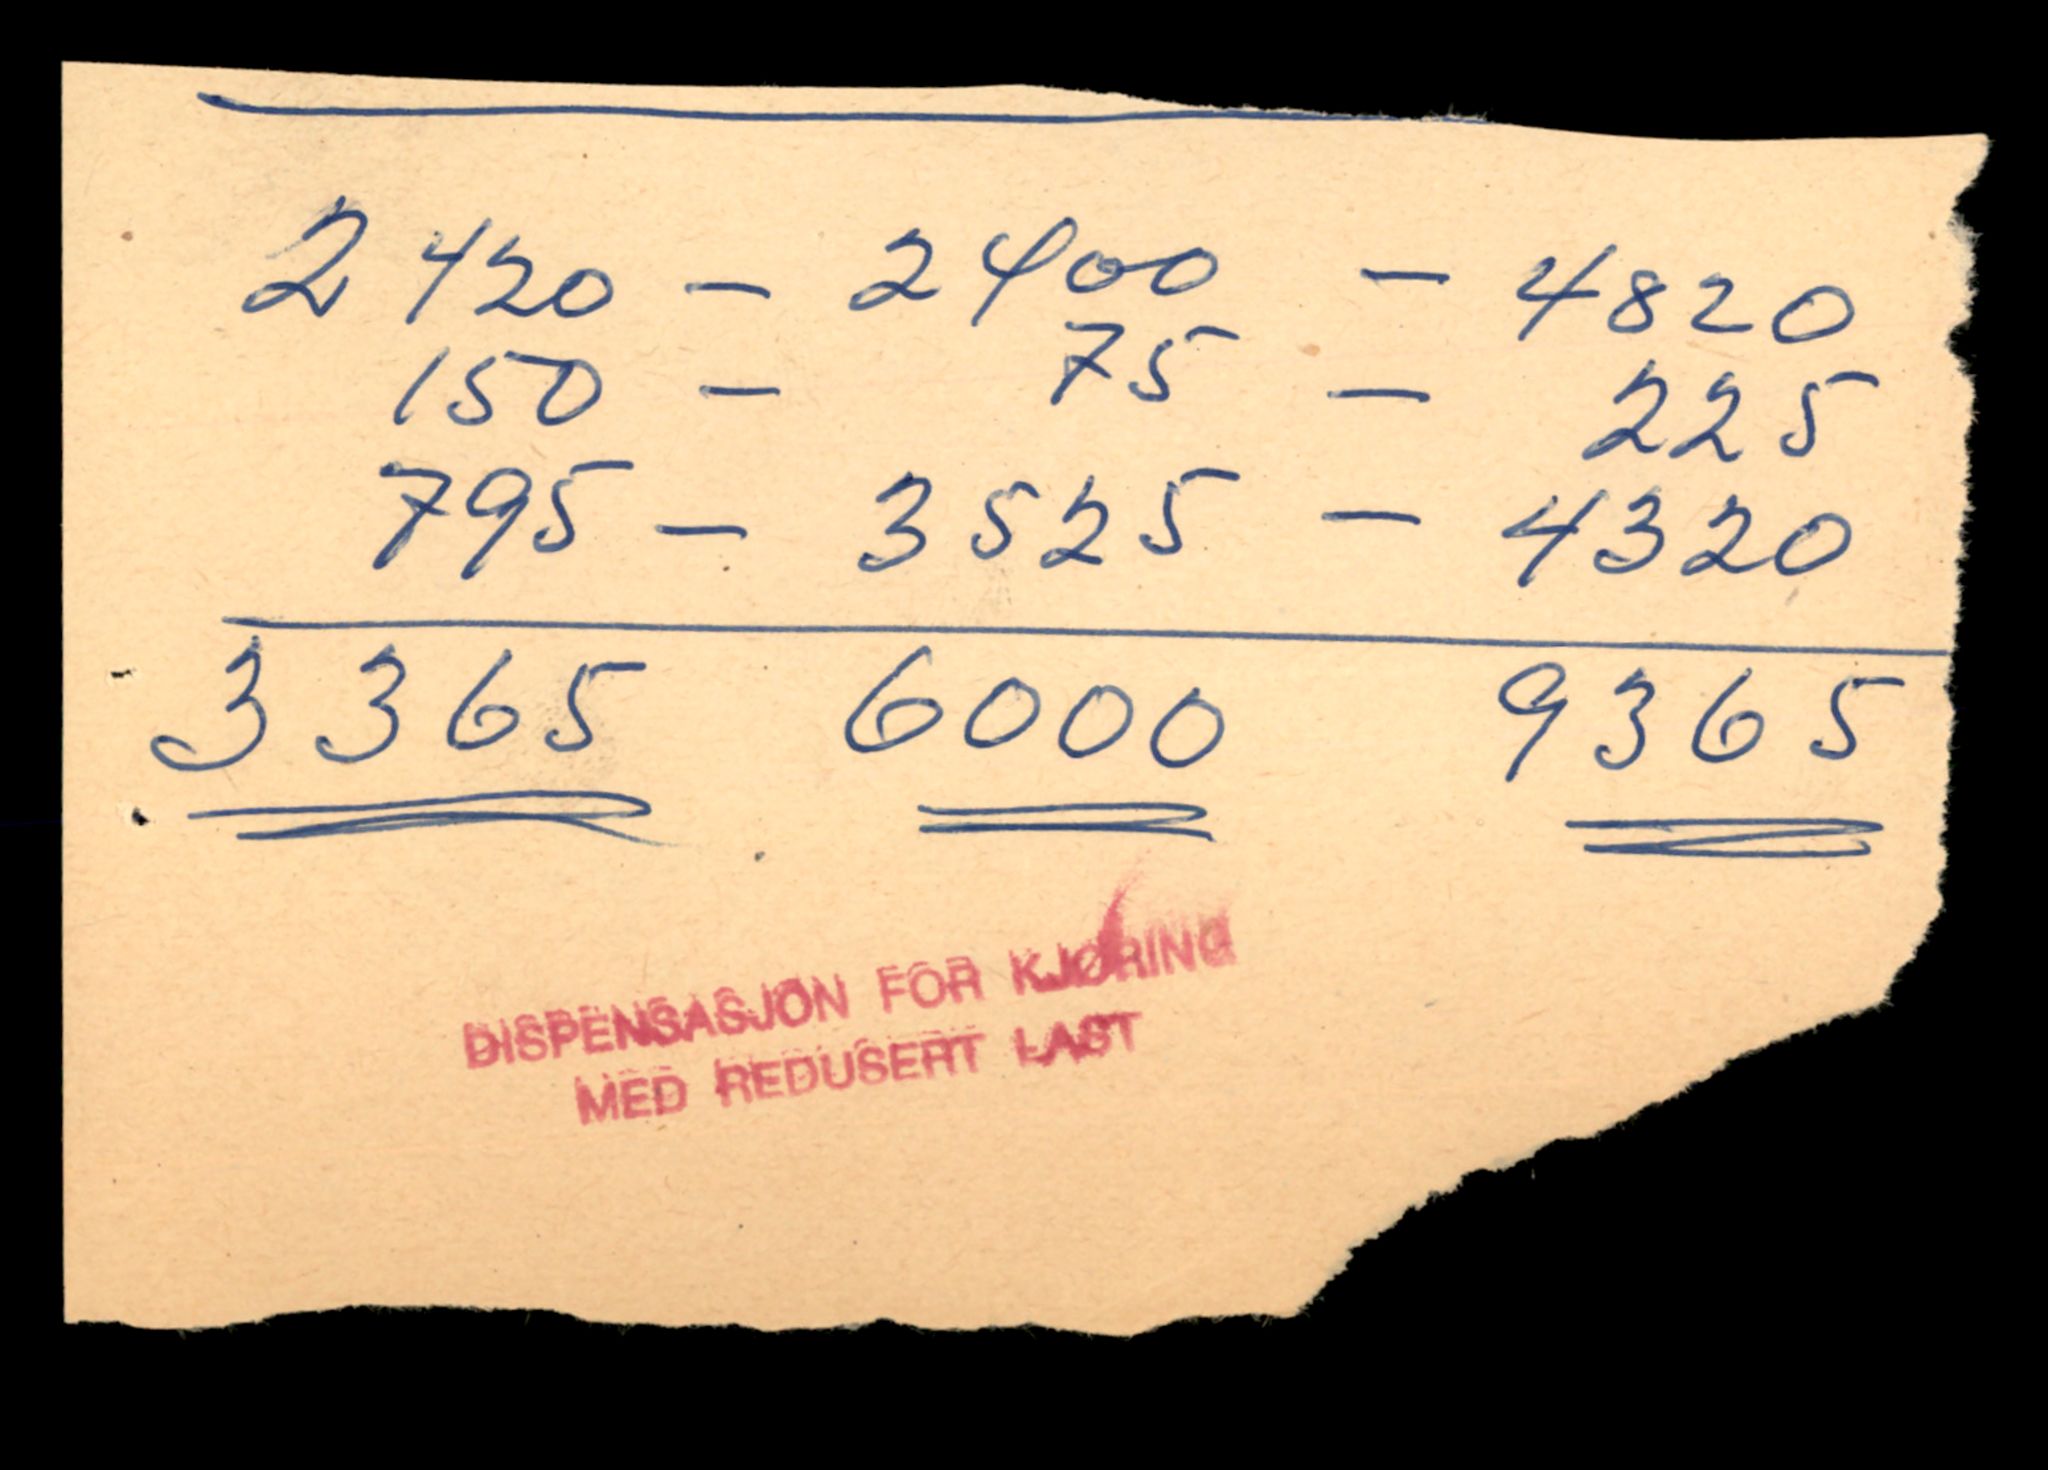 2420 - 2400 - 4820
150 - 75 - 225
795 - 3525 - 4320
3365 6000 9365
DISPENSASJON FOR KJØRING
MED REDUSERT LAST